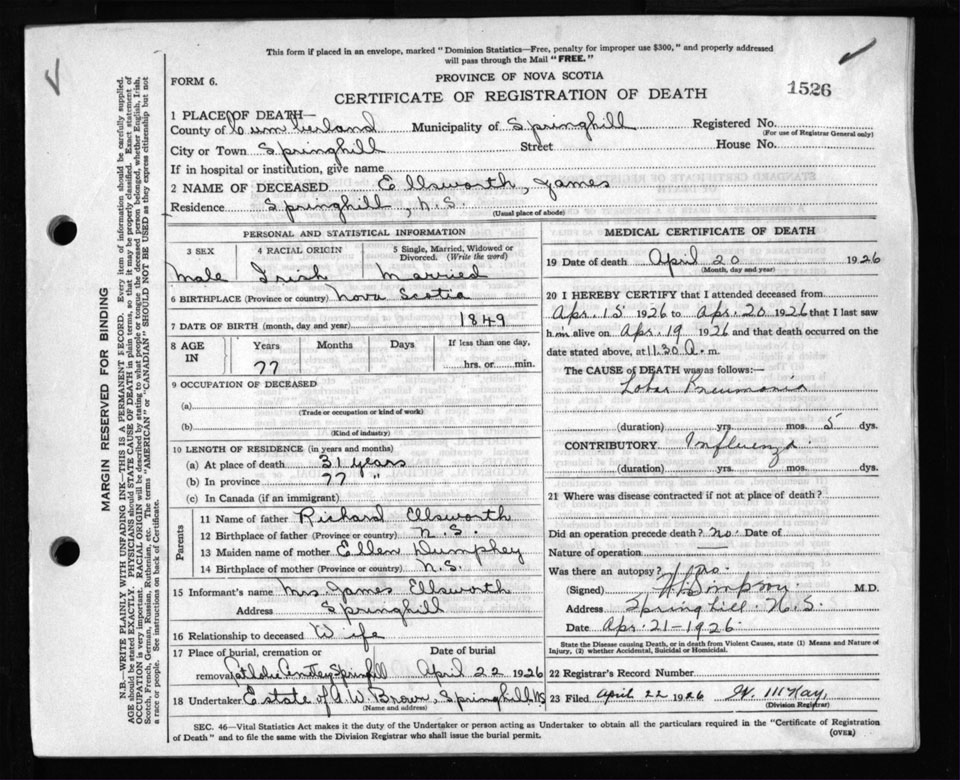 This form if placed in an envelope, marked "Dominion Statistics—Free, penalty for improper use $300," and properly addressed
will pass through the Mail "FREE."
FORM 6.
PROVINCE OF NOVA SCOTIA
CERTIFICATE OF REGISTRATION OF DEATH
1526
1 PLACE OF DEATH—
County of Cumberland Municipality of Springhill Registered No.
(For use of Registrar General only)
City or Town Springhill Street House No.
If in hospital or institution, give name
2 NAME OF DECEASED Ellsworth, James
Residence Springhill, N.S.
(Usual place of abode)
PERSONAL AND STATISTICAL INFORMATION
3 SEX 4 RACIAL ORIGIN 5 Single, Married, Widowed or
Divorced. (Write the word)
Male Irish Married
6 BIRTHPLACE (Province or country) Nova Scotia
7 DATE OF BIRTH (month, day and year) 1849
8 AGE IN Years Months Days If less than one day,
77 hrs. or min.
9 OCCUPATION OF DECEASED
(a)
(Trade or occupation or kind of work)
(b)
(Kind of industry)
10 LENGTH OF RESIDENCE (in years and months)
(a) At place of death 31 years
(b) In province 77 "
(c) In Canada (if an immigrant)
Parents
11 Name of father Richard Ellsworth
12 Birthplace of father (Province or country) N.S.
13 Maiden name of mother Ellen Dumphey
14 Birthplace of mother (Province or country) N.S.
15 Informant's name Mrs James Ellsworth
Address Springhill
16 Relationship to deceased Wife
17 Place of burial, cremation or Date of burial
removal Springhill April 22 1926
18 Undertaker Estate of A W. Brown, Springhill, NS
(Name and address)
MEDICAL CERTIFICATE OF DEATH
19 Date of death April 20 1926
(Month, day and year)
20 I HEREBY CERTIFY that I attended deceased from
Apr. 15 1926 to Apr. 20 1926 that I last saw
him alive on Apr. 19 1926 and that death occurred on
date stated above, at 11.30 A. m.
The CAUSE of DEATH was as follows:—
Lobar Pneumonia
(duration) yrs. mos. 5 dys.
CONTRIBUTORY Influenza.
(duration) yrs. mos. dys.
21 Where was disease contracted if not at place of death?
Did an operation precede death? No. Date of
Nature of operation —
Was there an autopsy? No.
(Signed) Simpson M.D.
Address Springhill N.S.
Date Apr. 21-1926.
State the Disease causing Death, or in death from Violent Causes, state (1) Means and Nature of
Injury, (2) whether Accidental, Suicidal or Homicidal.
22 Registrar's Record Number
23 Filed April 22 1926 McKay,
(Division Registrar)
SEC. 46—Vital Statistics Act makes it the duty of the Undertaker or person acting as Undertaker to obtain all the particulars required in the "Certificate of Registration
of Death" and to file the same with the Division Registrar who shall issue the burial permit.
(OVER)
MARGIN RESERVED FOR BINDING
N.B.—WRITE PLAINLY WITH UNFADING INK—THIS IS A PERMANENT RECORD. Every item of information should be carefully supplied.
AGE should be stated EXACTLY. PHYSICIANS should STATE CAUSE OF DEATH in plain terms, so that it may be properly classified. Exact statement of
OCCUPATION is very important. RACIAL ORIGIN will be described by stating to what people or tongue the deceased person belonged, whether English, Irish,
Scotch, French, German, Russian, Ruthenian, etc. The terms "AMERICAN" or "CANADIAN" SHOULD NOT BE USED as they express citizenship but not
a race or people. See instructions on back of Certificate.